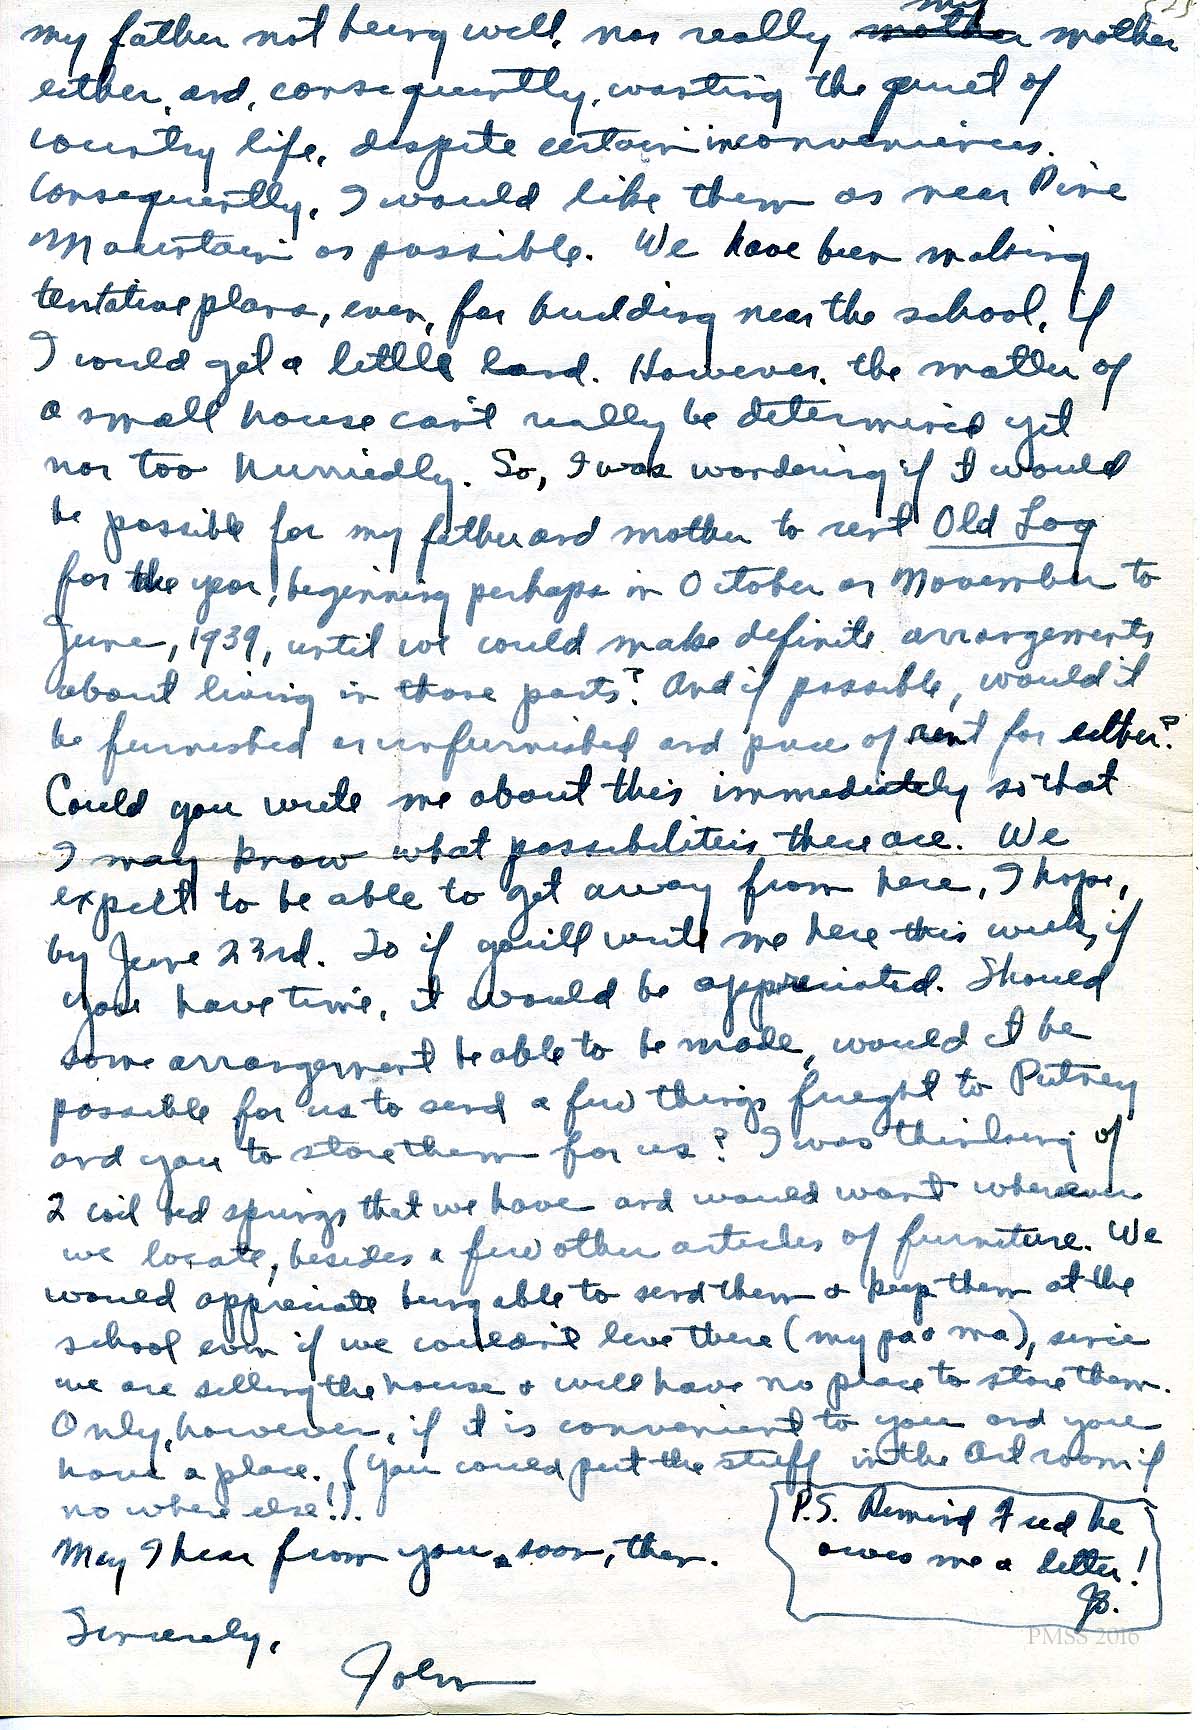 my father not being well, nor really my mother mother
either, and, consequently, wanting the quiet of
country life, despite certain inconveniences.
Consequently, I would like them as near Pine
Mountain as possible. We have been making
tentative plans, even, for building near the school, if
I could get a little land. However, the matter of
a small house can't really be determined yet
nor too hurriedly. So, I was wondering if it would
be possible for my father and mother to rent Old Log
for the year, beginning perhaps in October or November to
June, 1939, until we could make definite arrangements
about living in those parts? And if possible, would it
be furnished or unfurnished and price of rent for either?
Could you write me about this immediately so that
I may know what possibilities there are. We
expect to be able to get away from here, I hope,
by June 23rd. So if you'll write me here this week, if
you have time, it would be appreciated. Should
some arrangement be able to be made, would it be
possible for us to send a few things freight to Putney
and you to store them for us? I was thinking of
2 coil bed springs that we have and would want wherever
we locate, besides a few other articles of furniture. We
would appreciate being able to send them & keep them at the
school even if we couldn't live there (my pa & ma), since
we are selling the house & will have no place to store them.
Only, however, if it is convenient to you and you
have a place. (You could put the stuff in the Art room if
no where else!).
May I hear from you soon, then.
Sincerely,
John
P.S. Remind Fred he
owes me a letter!
JB.
PMSS 2016